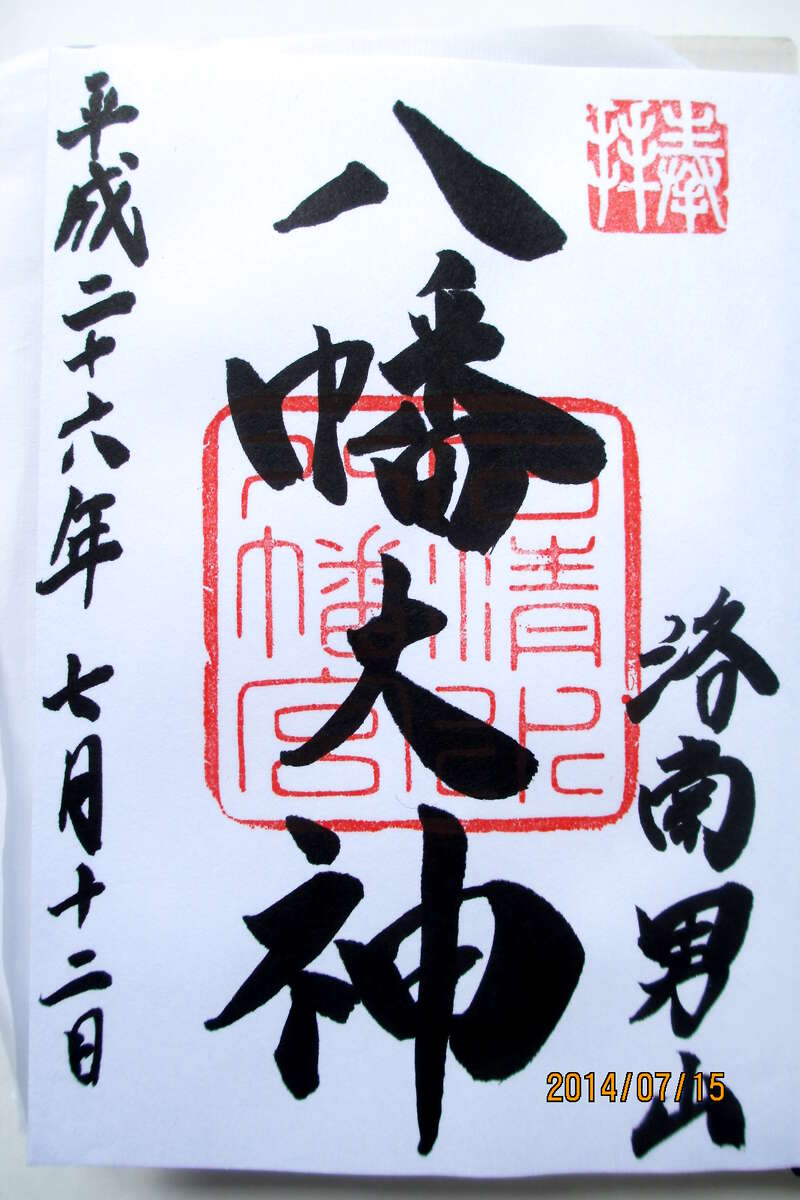 奉拝
洛南男山
八幡大神
石清水八幡宮
平成二十六年 七月十二日
2014/07/15